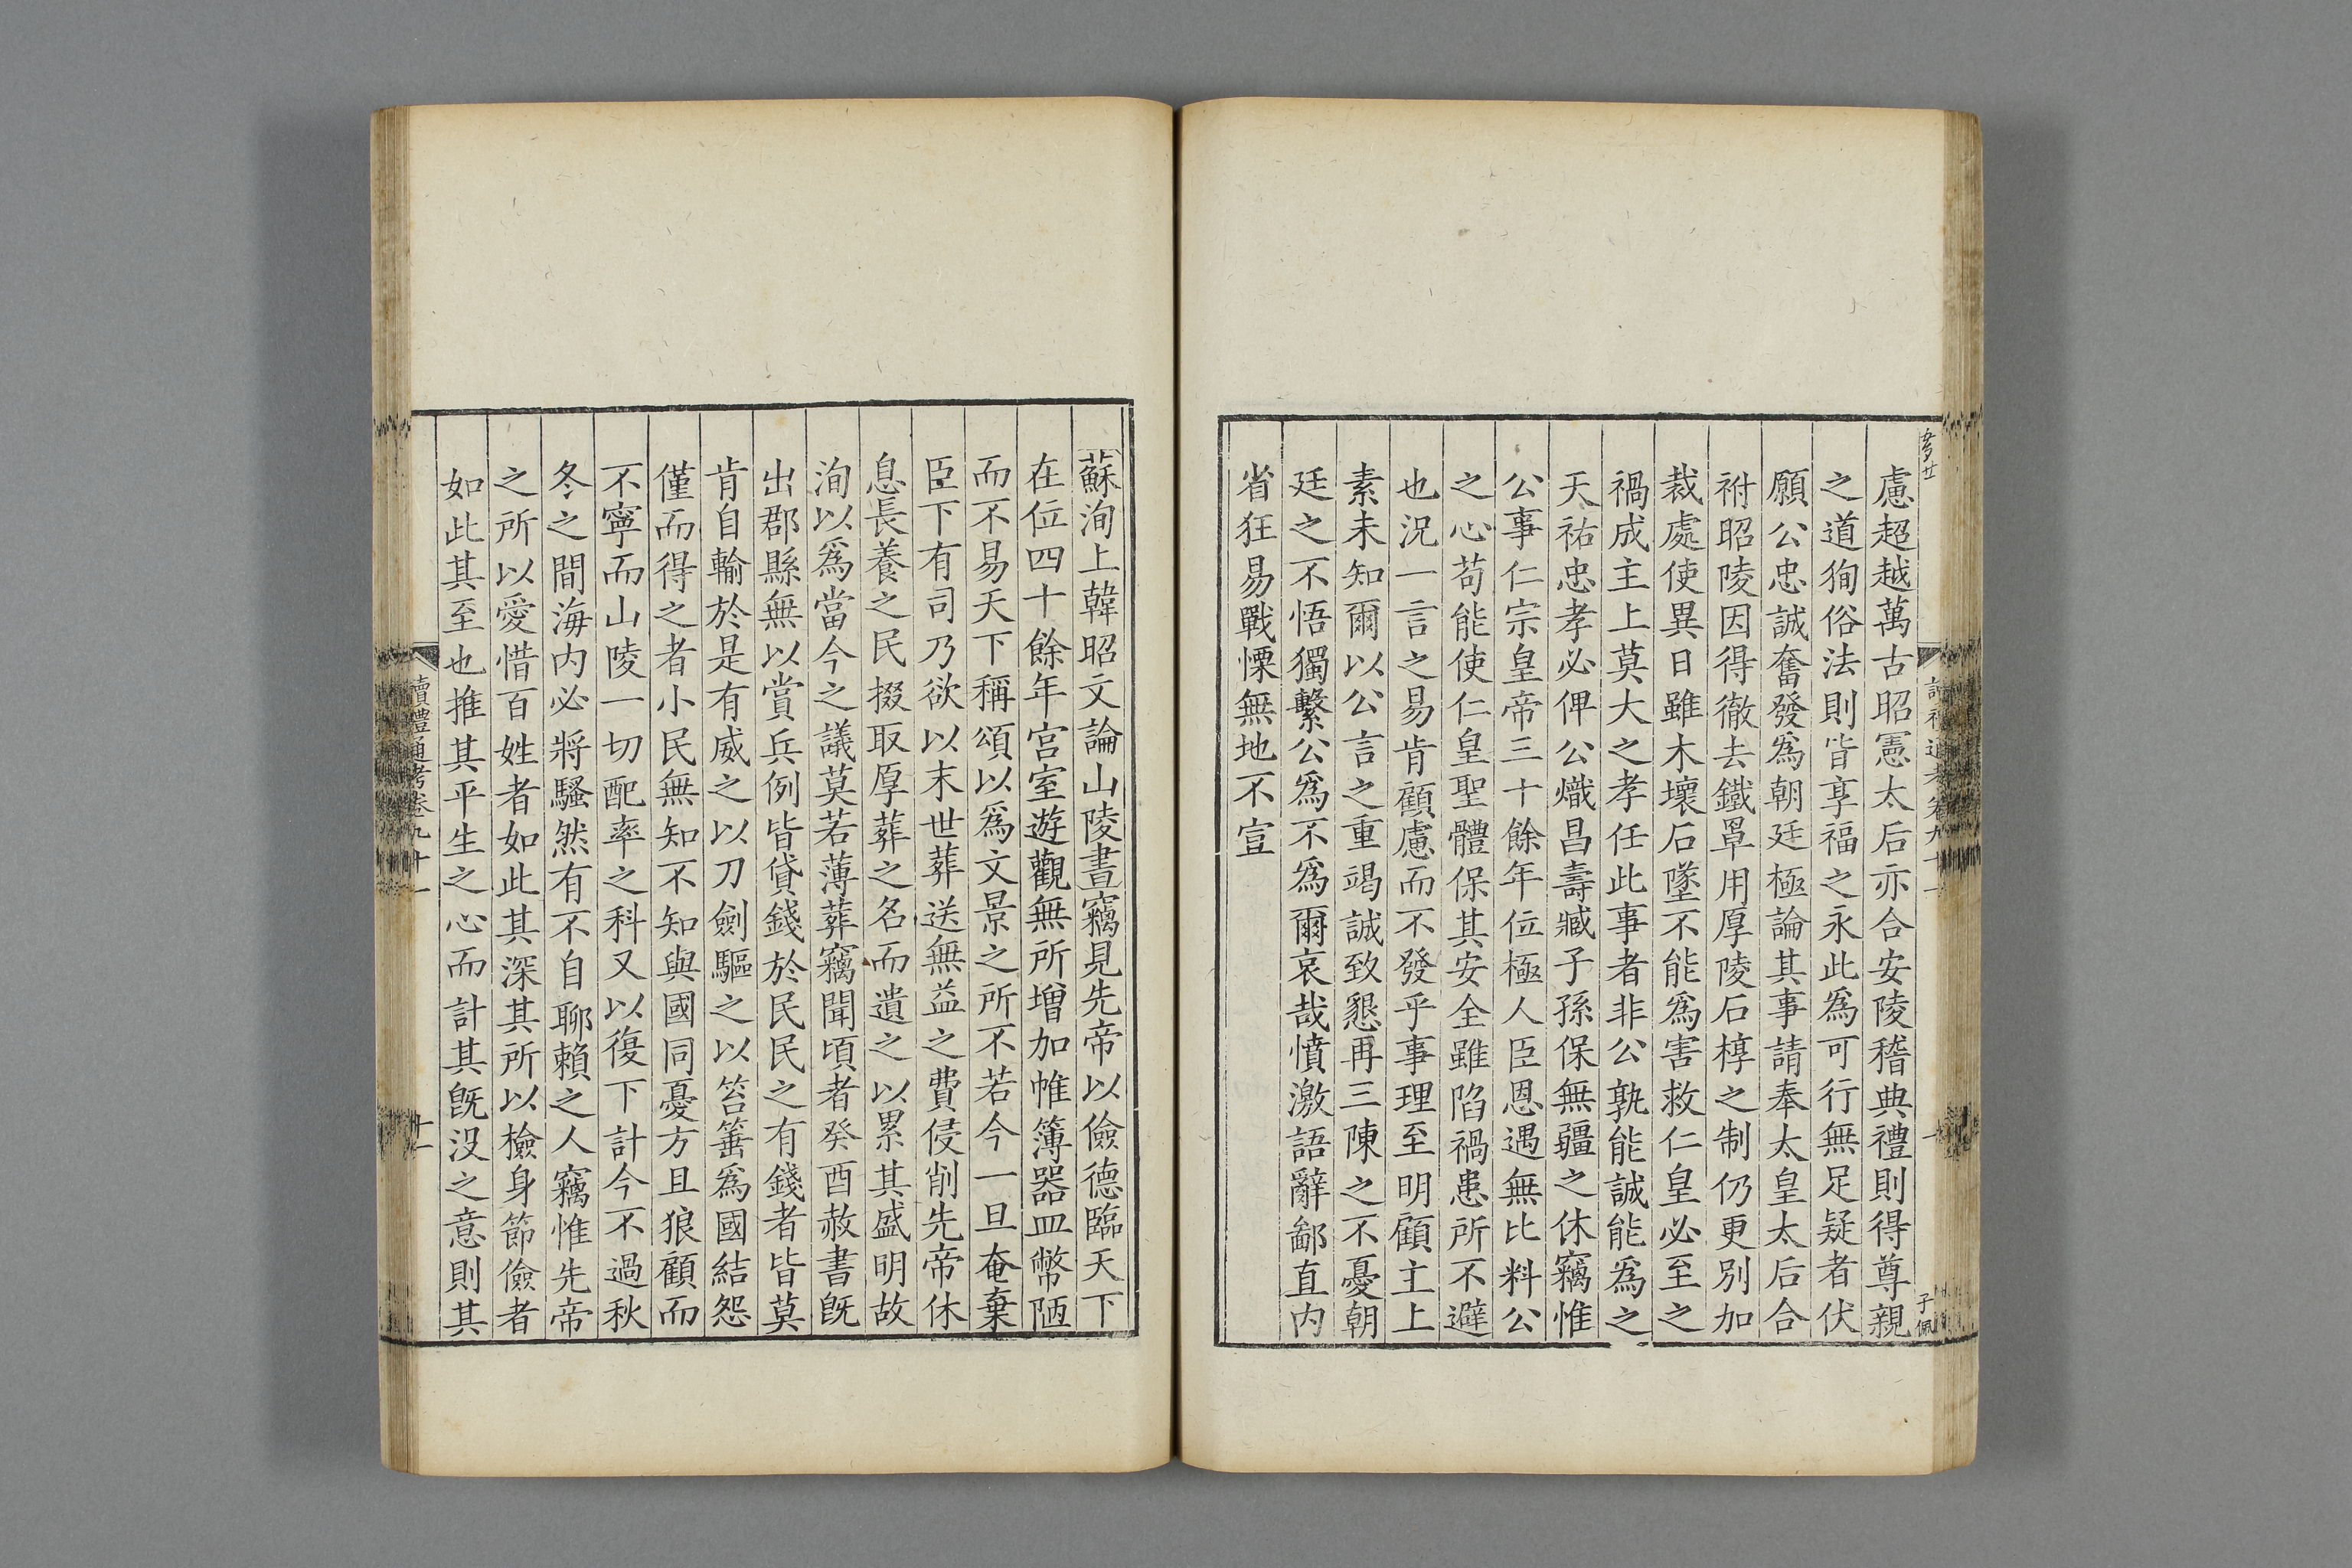 慮超越萬古昭憲太后亦合安陵稽典禮則得尊親
之道狥俗法則皆享福之永此爲可行無足疑者伏
願公忠誠奮發爲朝廷極論其事請奉太皇太后合
祔昭陵因得徹去鐵罩用厚陵石椁之制仍更別加
裁處使異日雖木壞石墜不能爲害救仁皇必至之
禍成主上莫大之孝任此事者非公孰能誠能爲之
天祐忠孝必俾公熾昌壽臧子孫保無疆之休竊惟
公事仁宗皇帝三十餘年位極人臣恩遇無比料公
之心苟能使仁皇聖體保其安全雖陷禍患所不避
也況一言之易肯顧慮而不發乎事理至明顧主上
素未知爾以公言之重竭誠致懇再三陳之不憂朝
廷之不悟獨繫公爲不爲爾哀哉憤激語辭鄙直內
省狂易戰慄無地不宣
子佩
蘇洵上韓昭文論山陵書竊見先帝以儉德臨天下
在位四十餘年宮室遊觀無所增加帷簿器皿幣陋
而不易天下稱頌以爲文景之所不若今一旦奄棄
臣下有司乃欲以末世葬送無益之費侵削先帝休
息長養之民掇取厚葬之名而遺之以累其盛明故
洵以爲當今之議莫若薄葬竊聞頃者癸酉赦書旣
出郡縣無以賞兵例皆貸錢於民民之有錢者皆莫
肯自輸於是有威之以刀劍驅之以笞箠爲國結怨
僅而得之者小民無知不知與國同憂方且狼顧而
不寧而山陵一切配率之科又以復下計今不過秋
冬之間海內必將騷然有不自聊賴之人竊惟先帝
之所以愛惜百姓者如此其深其所以檢身節儉者
如此其至也推其平生之心而計其旣沒之意則其
讀禮通考卷九十一
十一